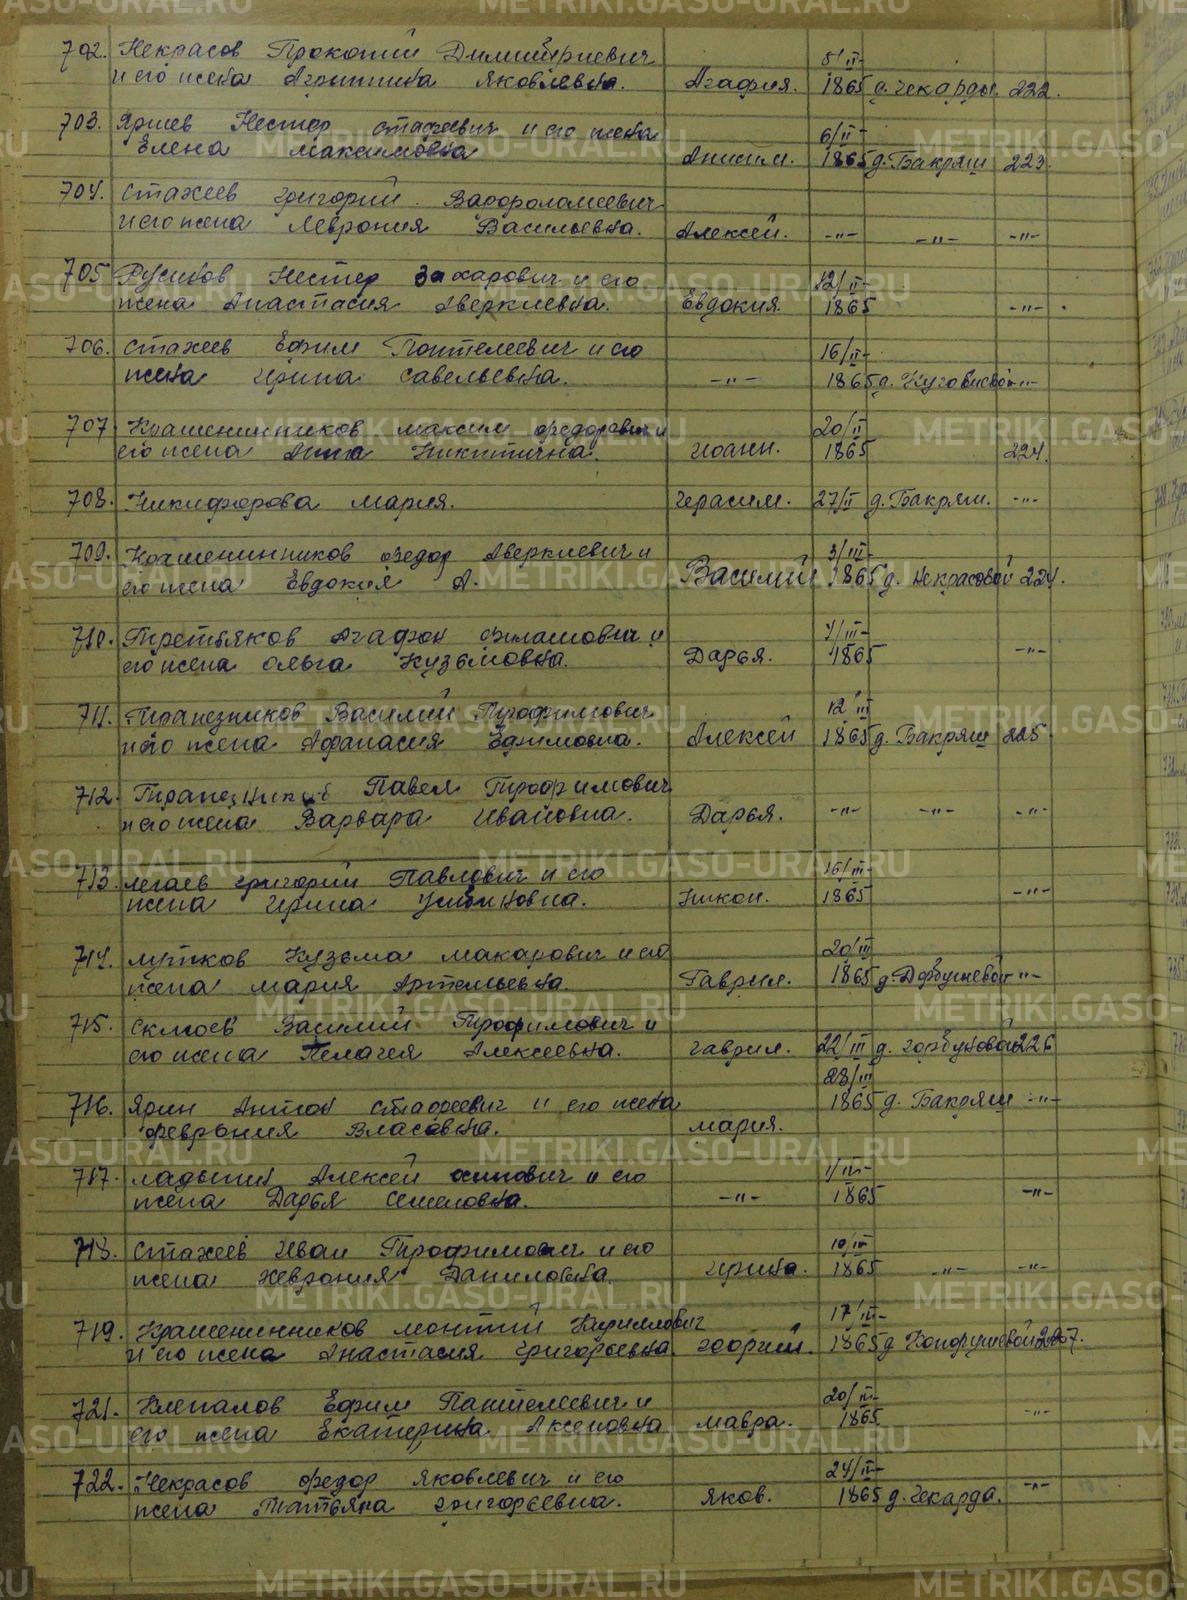 702. Некрасов Прокопий Димитриевич 8/II-
и его жена Агриппина Яковлевна. Агафия. 1865 д. Чекарды. 222.
703. Яриев Нестер Стафеевич и его жена 6/II-
Елена Максимовна Анисим. 1865 д. Бакряш 223.
704. Стахеев Григорий Варфоломеевич
и его жена Феврония Васильевна. Алексей. -"- -"- -"-
705 Русинов Нестер Захарович и его 12/II-
жена Анастасия Аверкиевна. Евдокия. 1865 -"-
706. Стахеев Ефим Понтелеевич и его 16/II-
жена Ирина Савельевна. -"- 1865 д. -"-
707 Крашенинников Максим Федорович и 20/II
его жена Анна Никитична. Иоанн. 1865 224.
708. Никифорова Мария. Герасим. 27/II д. Бакряш. -"-
709. Крашенинников Федор Аверкиевич и 3/III-
его жена Евдокия А. Василий 1865 д. Некрасовой 224.
710. Третьяков Агафон и 4/III-
его жена Ольга Кузьмовна. Дарья. 1865 -"-
711. Трапезников Василий Трофимович 12 III
и его жена Афанасия Ефимовна. Алексей 1865 д. Бакряш 225
712. Трапезников Павел Трофимович
и его жена Варвара Ивановна. Дарья. -"- -"- -"-
713. Легаев Григорий Павлович и его 16/III-
жена Ирина Устиновна. Никон. 1865 -"-
714. Лутков Кузьма Макарович и его 20/III
жена Мария Артельевна. Гаврил. 1865 д. -"-
715. Склюев Василий Трофимович и
его жена Пелагея Алексеевна. Гаврил. 22/III д. Горбуновой 226
716. Ярин Антон Стафеевич и его жена 28/III 1865 д. Бакряш -"-
Феврония Власовна. Мария.
717. Ладыгин Алексей Осипович и его 1/IV-
жена Дарья Семеновна. -"- 1865 -"-
718. Стахеев Иван Трофимович и его 10/IV
жена Хеврония Даниловна. Ирина. 1865 -"- -"-
719. Крашенинников Монтий Кириллович 17/III-
и его жена Анастасия Григорьевна. Георгий. 1865 д. 227.
721. Клепалов Ефим Пантелеевич и 20/IV-
его жена Екатерина Аксеновна Мавра. 1865 -"-
722. Некрасов Федор Яковлевич и его 24/IV-
жена Татьяна Григорьевна. Яков. 1865 д. Чекарда. -"-
METRIKI.GASO-URAL.RU